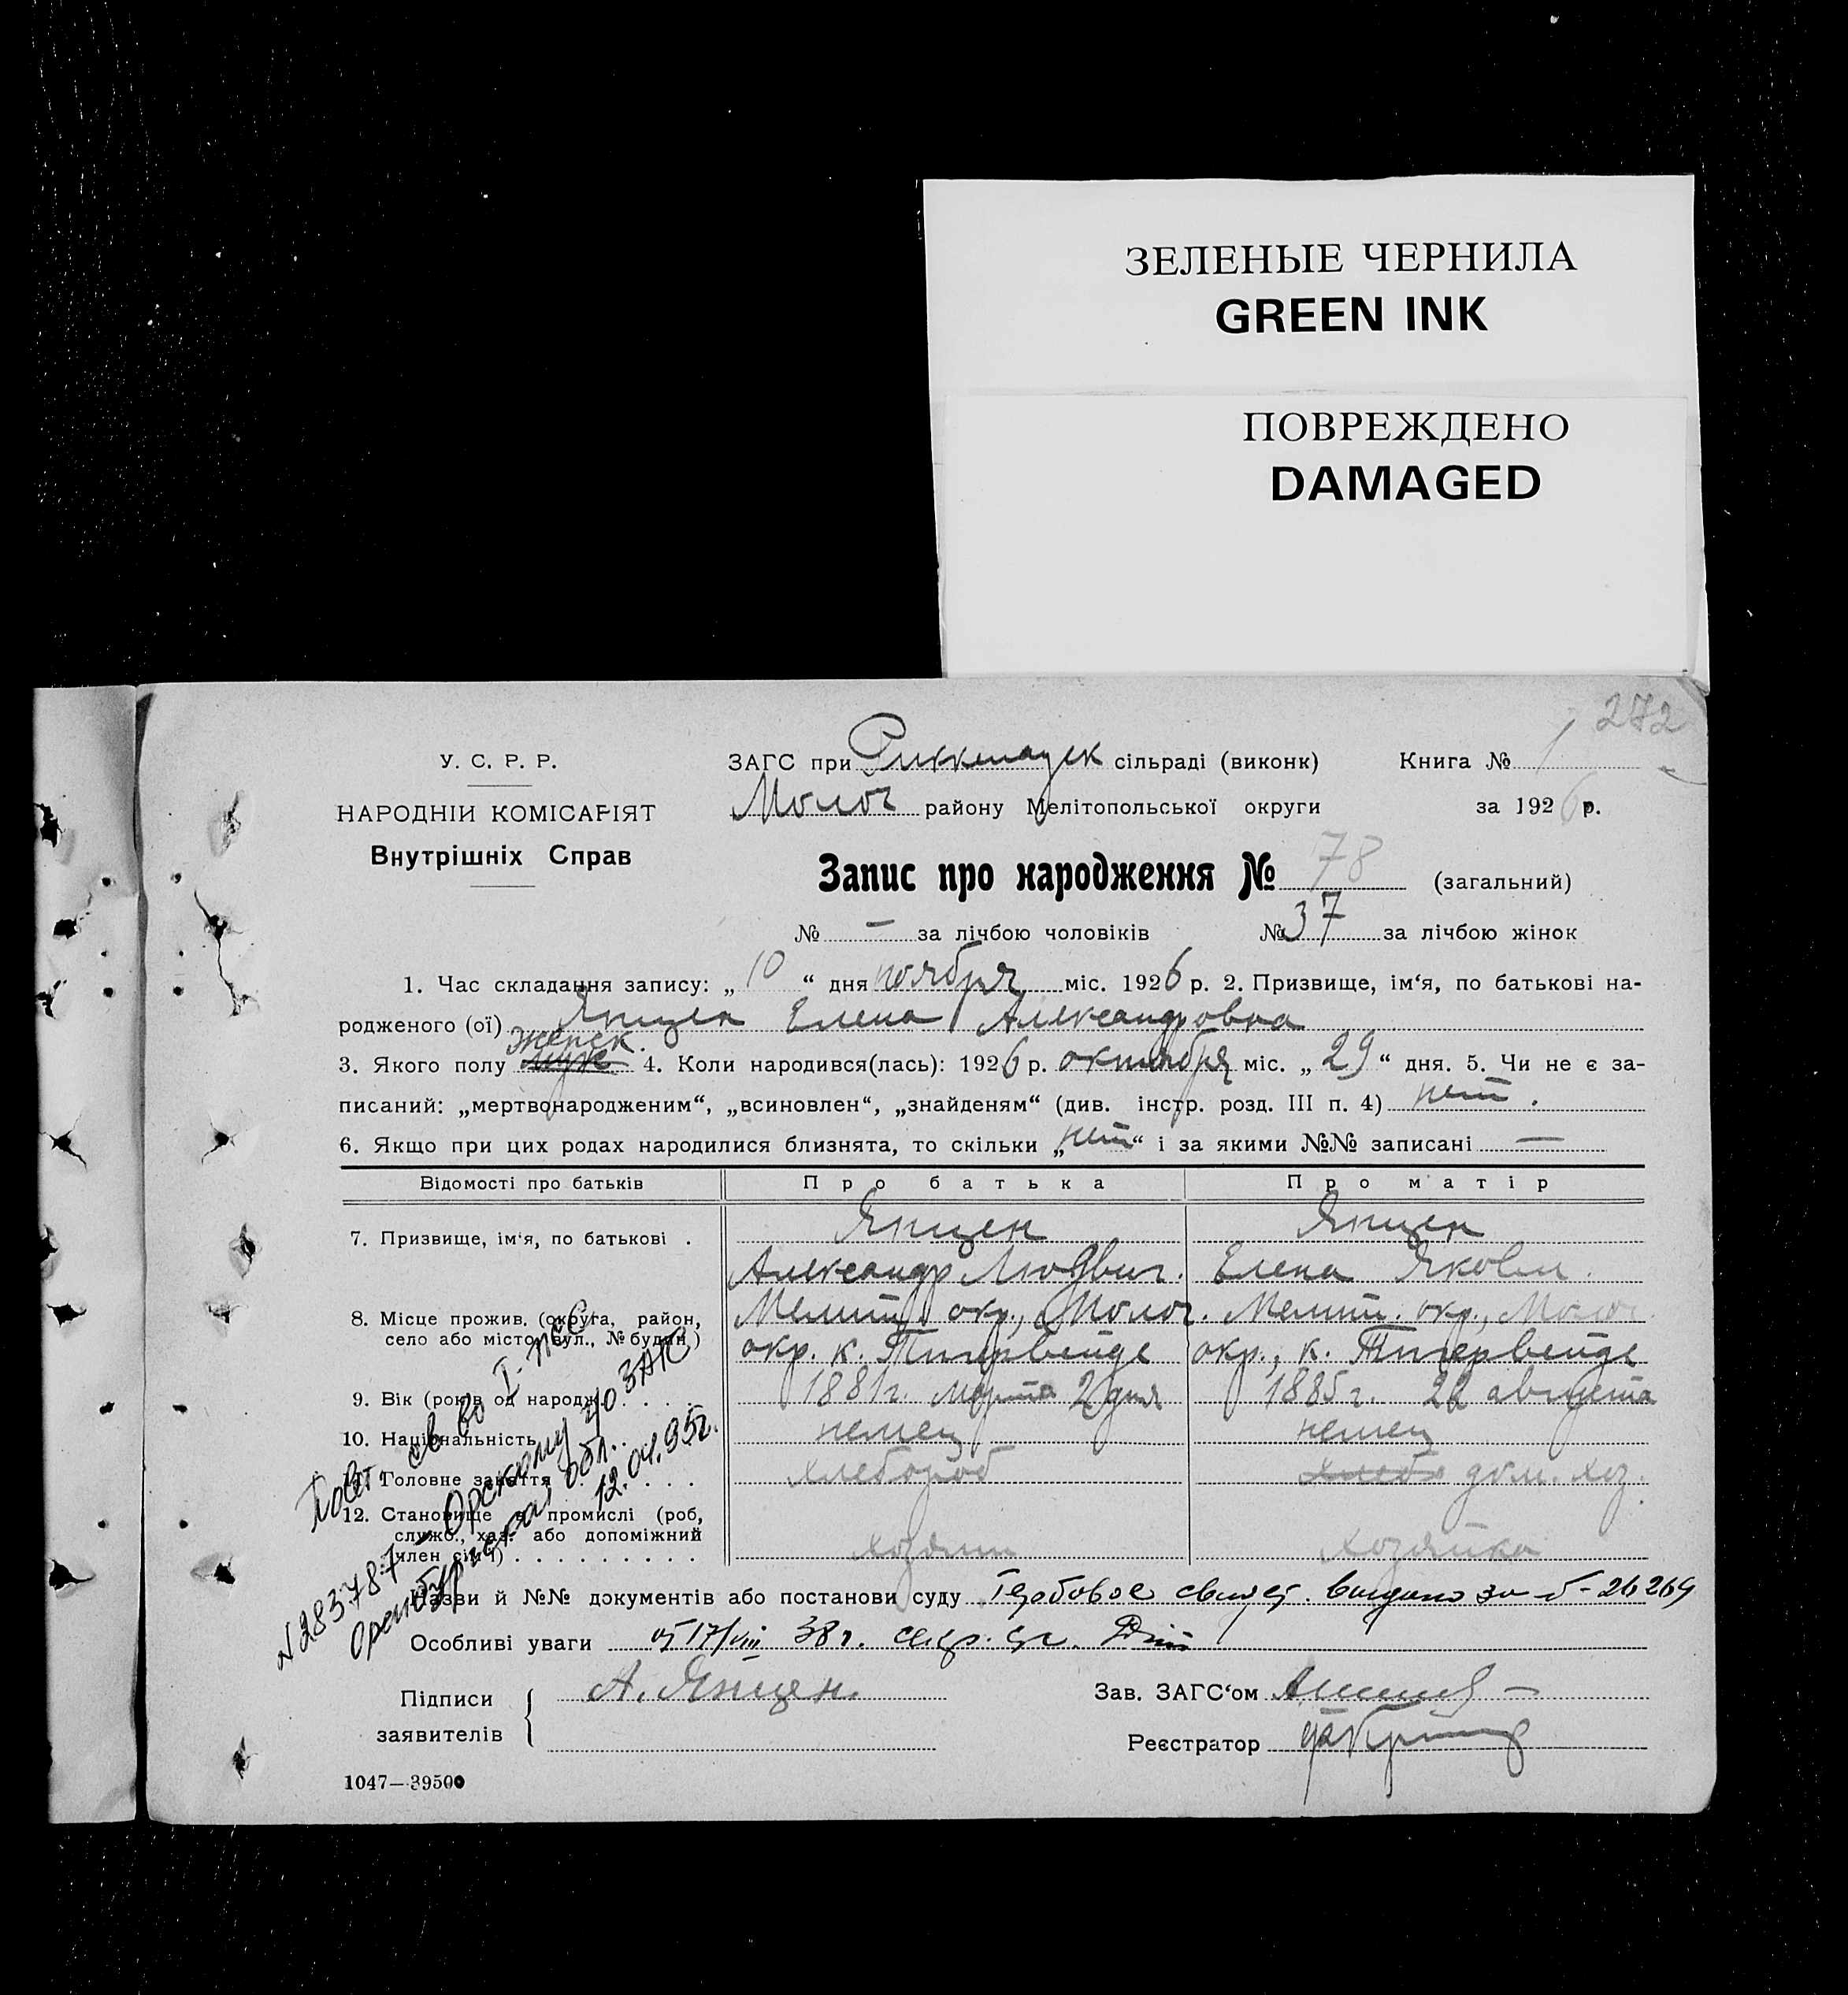 ЗЕЛЕНЫЕ ЧЕРНИЛА
GREEN INK
ПОВРЕЖДЕНО
DAMAGED
272
У. С. Р. Р.
НАРОДНІЙ КОМІСАРІЯТ
Внутрішніх Справ
ЗАГС при Рикенауск сільраді (виконк) Книга № 1
Молоч району Мелітопольської округи за 1926 р.
Запис про народження № 78 (загальний)
№ — за лічбою чоловіків № 37 за лічбою жінок
1. Час складання запису: „10“ дня ноября міс. 1926 р. 2. Призвище, ім‘я, по батькові на-
родженого (ої) Янцен Елена Александровна
женск.
3. Якого полу муж 4. Коли народився(лась): 1926 р. октября міс. „29“ дня. 5. Чи не є за-
писаний: „мертвонародженим“, „всиновлен“, „знайденям“ (див. інстр. розд. III п. 4) нет.
6. Якщо при цих родах народилися близнята, то скільки „нет“ і за якими №№ записані —
Відомості про батьків Про батька Про матір
7. Призвище, ім‘я, по батькові . Янцен Янцен
Александр Людвиг. Елена Яковл.
8. Місце прожив. (округа, район, село або місто, вул., № будин.) Мелит. окр., Молоч. Мелит. окр., Молоч
окр. к. Тигервейде окр., к. Тигервейде
9. Вік (років од народж.) . . . . 1881 г. марта 2 дня 1885 г. 22 августа
10. Національність . . немец немец
11. Головне заняття . . . . . . хлебороб хлебо дом. хоз.
12. Становище в промислі (роб, служб., хаз. або допоміжний член сім‘ї) . . . . . . . . . хозяин хозяйка
Назви й №№ документів або постанови суду Гербовое свидет. выдано за № 26269
Особливі уваги от 17/VIII 38 г.
Підписи заявителів А. Янцен.
Зав. ЗАГС‘ом
Реєстратор
1047—39500
Повт. св во I-ЖС
N 283787 – Орскому г/о ЗАГС
Оренбургская обл.
12.04.95г.